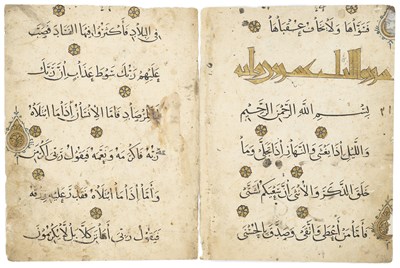 فَسَوَّاهَا وَلَا يَخَافُ عُقْبَاهَا
سورة الليل
بِسْمِ اللهِ الرَّحْمٰنِ الرَّحِيمِ
وَاللَّيْلِ اِذَا يَغْشَى وَالنَّهَارِ اِذَا تَجَلَّى وَمَا
خَلَقَ الذَّكَرَ وَالْاُنْثَى اِنَّ سَعْيَكُمْ لَشَتَّى
فَاَمَّا مَنْ اَعْطَى وَاتَّقَى وَصَدَّقَ بِالْحُسْنَى
فِي الْبِلَادِ فَاَكْثَرُوا فِيهَا الْفَسَادَ فَصَبَّ
عَلَيْهِمْ رَبُّكَ سَوْطَ عَذَابٍ اِنَّ رَبَّكَ
لَبِالْمِرْصَادِ فَاَمَّا الْاِنْسَانُ اِذَا مَا ابْتَلَاهُ
رَبُّهُ فَاَكْرَمَهُ وَنَعَّمَهُ فَيَقُولُ رَبِّي اَكْرَمَنِ
وَاَمَّا اِذَا مَا ابْتَلَاهُ فَقَدَرَ عَلَيْهِ رِزْقَهُ
فَيَقُولُ رَبِّي اَهَانَنِ كَلَّا بَلْ لَا تُكْرِمُونَ